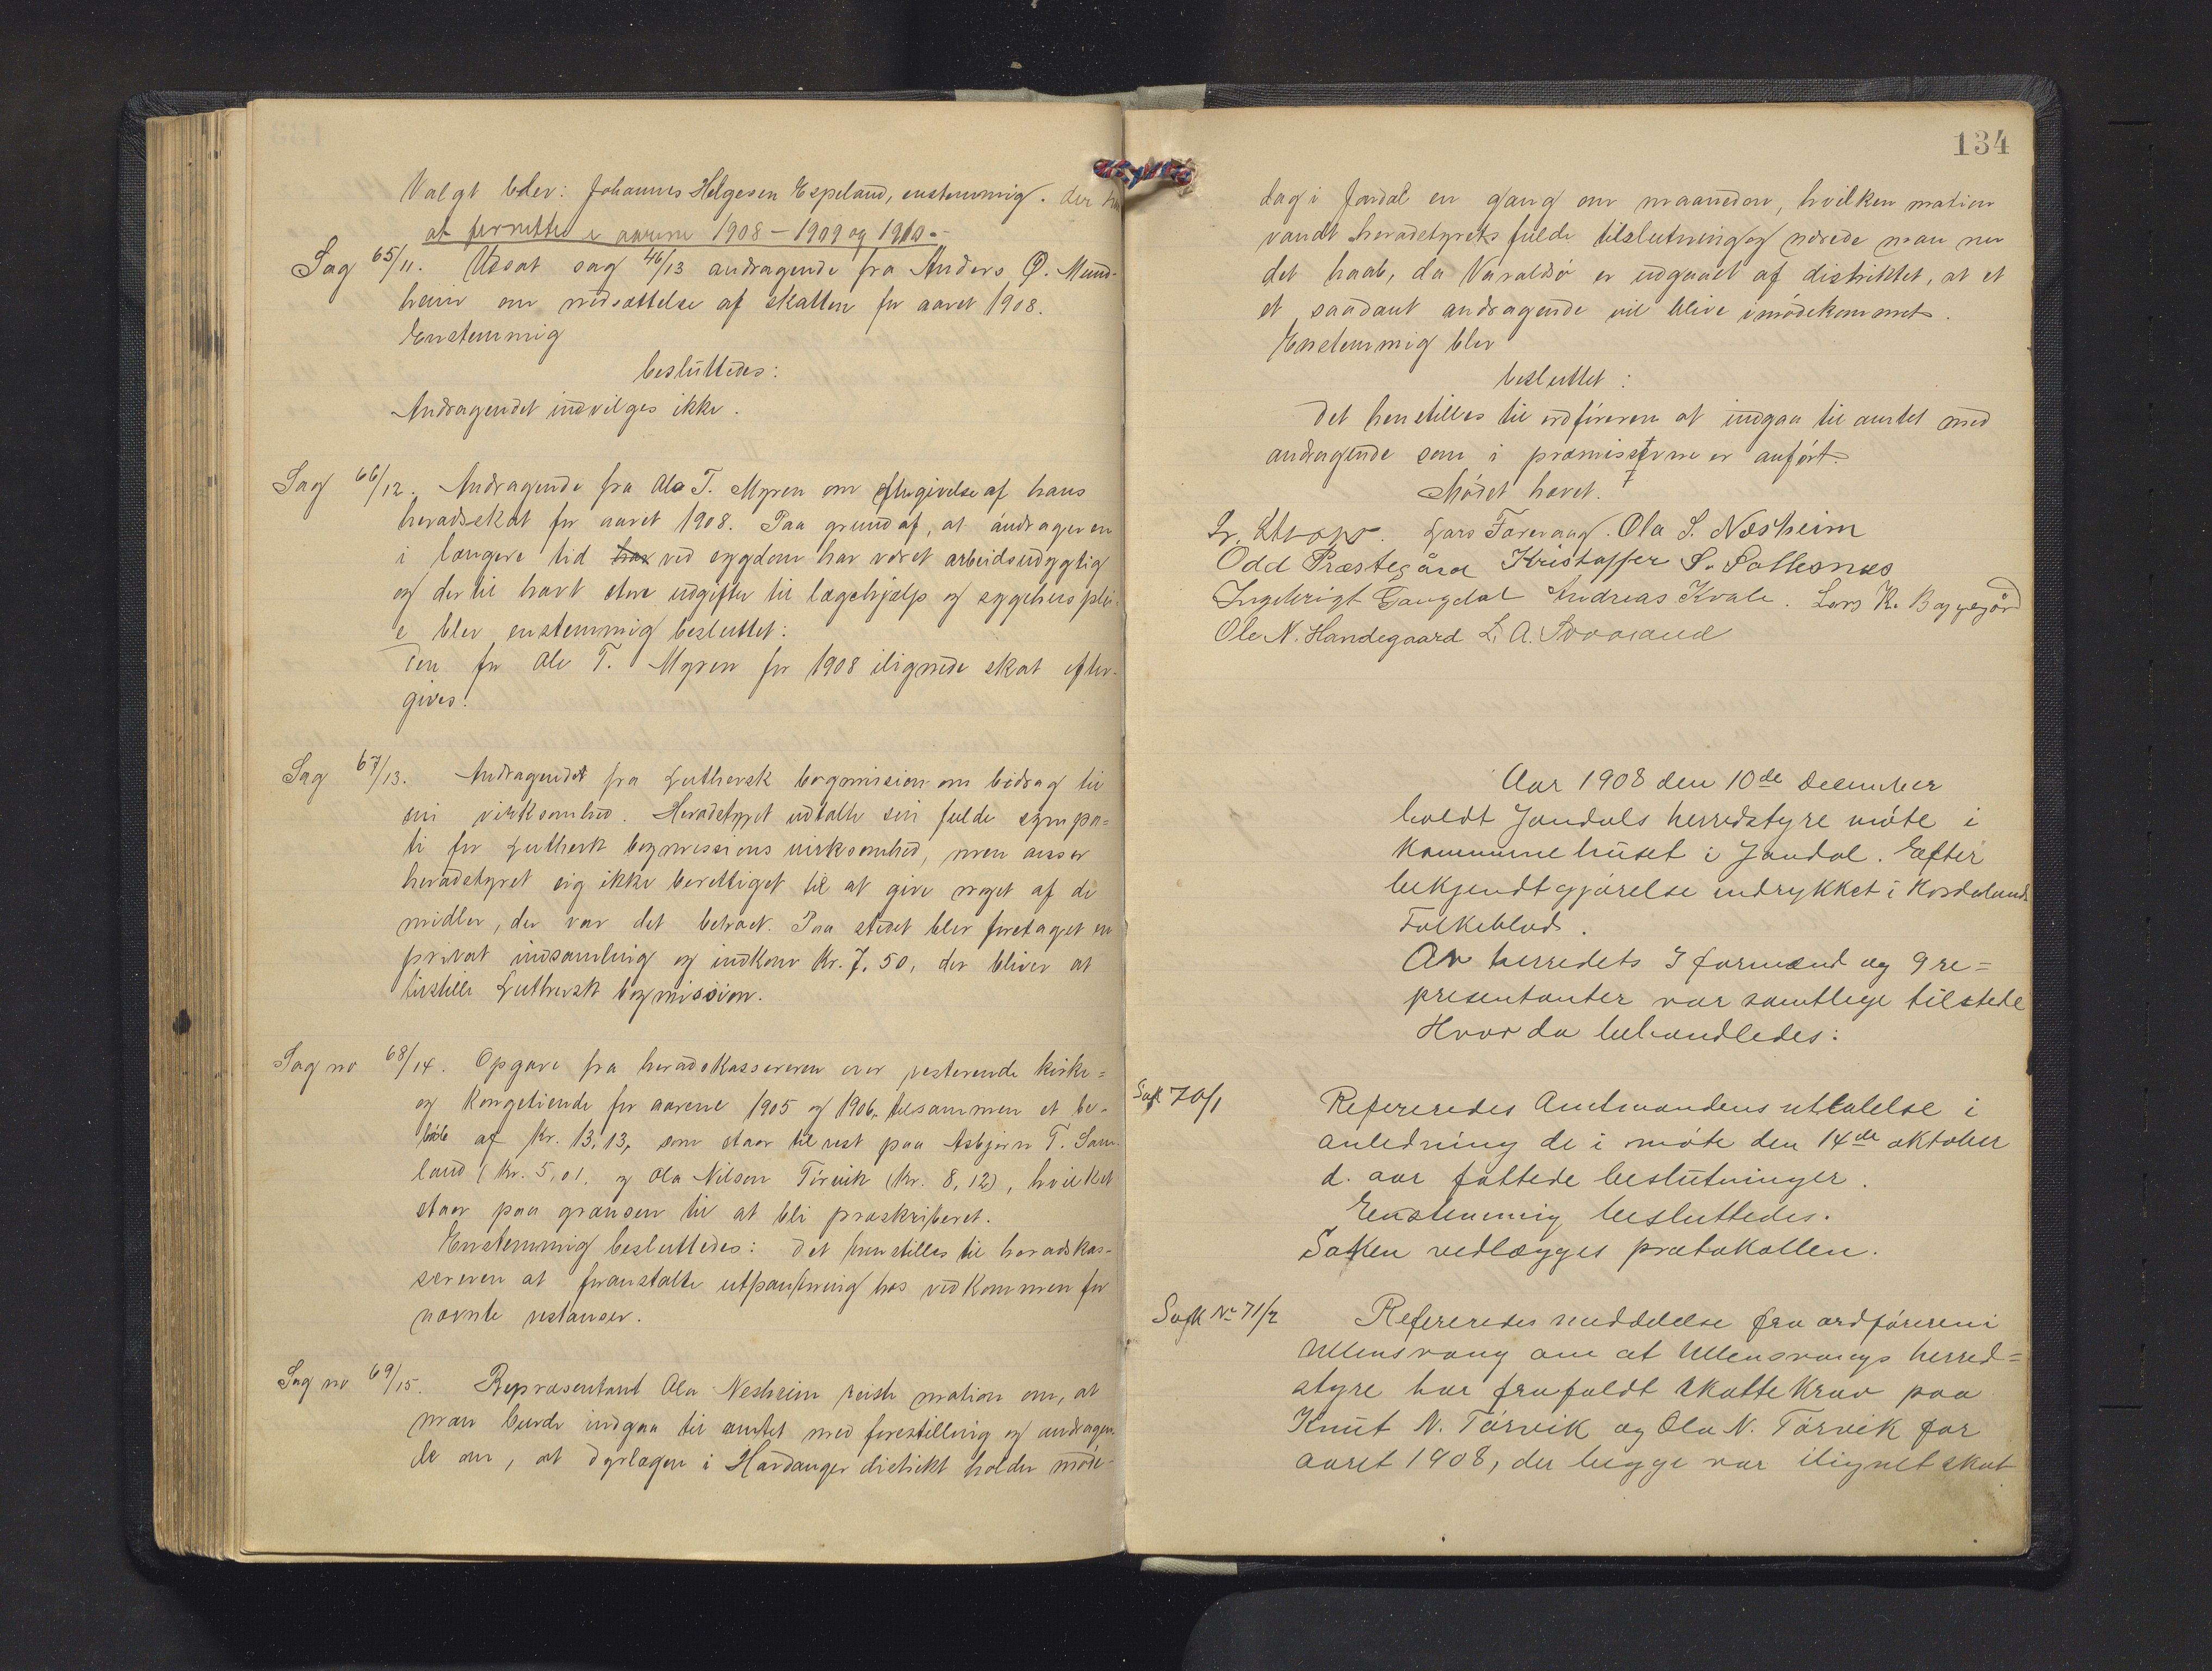 Valgt blev: Johannes Helgesen Espeland, enstemmig. der har
at forrette i aarene 1908 – 1909 og 1910.-
Sag 65/11. Udsat sag 46/13 andragende fra Anders O. Mund-
heim om nedsættelse af skatten for aaret 1908.
Enstemmig
besluttedes:
Andragendet indvilges ikke.
Sag 66/12. Andragende fra Ole T. Myren om eftergivelse af hans
heradsskat for aaret 1908. Paa grund af, at andrageren
i længere tid har ved sygdom har været arbeidsudygtig
og der til havt store udgifter til lægehjælp og sygehuspli-
e blev enstemmig besluttet:
Den for Ole T. Myren for 1908 ilignede skat efter-
gives.
Sag 67/13. Andragendet fra Luthersk bogmission om bidrag til
sin virksomhed. Heradstyret udtalte sin fulde sympa=
ti for Luthersk bogmissions virksomhed, men anser
heradstyret sig ikke berettiget til at give noget af de
midler, der var det betroet. Paa stedet blev foretaget en
privat indsamling og indkom Kr. 7.50, der bliver at
tilstille Luthersk bogmission.
Sag no 68/14. Opgave fra heradskassereren over resterende kirke=
og Kongetiende for aarene 1905 og 1906, tilsammen et be-
löb af Kr. 13,13, som staar til rest paa Asbjörn T. Sam-
land (Kr. 5,01. og Ola Nilsen Törvik (Kr. 8,12), hvilket
staar paa grænsen til at bli præskriberet.
Enstemmig besluttedes: Det henstilles til heradskas-
sereren at foranstalte utpantning hos vedkommen for
nævnte restanser.
Sag no 69/15. Repræsentant Ola Nesheim reiste motion om, at
man burde indgaa til amtet med forestilling og andragen
de om, at dyrlægen i Hardanger distrikt holder möde-
134
dag i Jondal en gang om maaneden, hvilken motion
vandt heradstyrets fulde tilslutning og nærede man nu
det haab, da Varaldsö er udgaaet af distriktet, at et
et saadant andragende vil blive imödekommet.
Enstemmig blev
besluttet:
Det henstilles til ordföreren at indgaa til amtet med
andragende som i præmisserne er anfört.
Mödet hævet.
Lars Torevang. Ola S. Næsheim
Odd Præstegård Kristoffer S. Solhesnæs
Ingebrigt Gangdal Andreas Kvale. Lars K. Byggegård
Ole N. Handegaard L. A. Svaasand
Aar 1908 den 10de December
holdt Jondals herredstyre møte i
Kommunehuset i Jondal. Efter
bekjendtgjørelse indrykket i Hordalands
Folkeblad.
Av herredets 3 formænd og 9 re=
presentanter var samtlege tilstede
Hvor da behandledes:
Sak 70/1
Refereredes Amtmandens uttalelse i
anledning de i møte den 14de oktober
d. aar fattede beslutninger.
Enstemmig besluttedes.
Saken vedlægges protokollen.
Sak No 71/2
Refereredes meddelelse fra ordføreren i
Ullensvang om at Ullensvangs herred=
styre har frafaldt skattekrav paa
Knut N. Tørvik og Ola N. Tørvik for
aaret 1908, der begge var ilignet skat